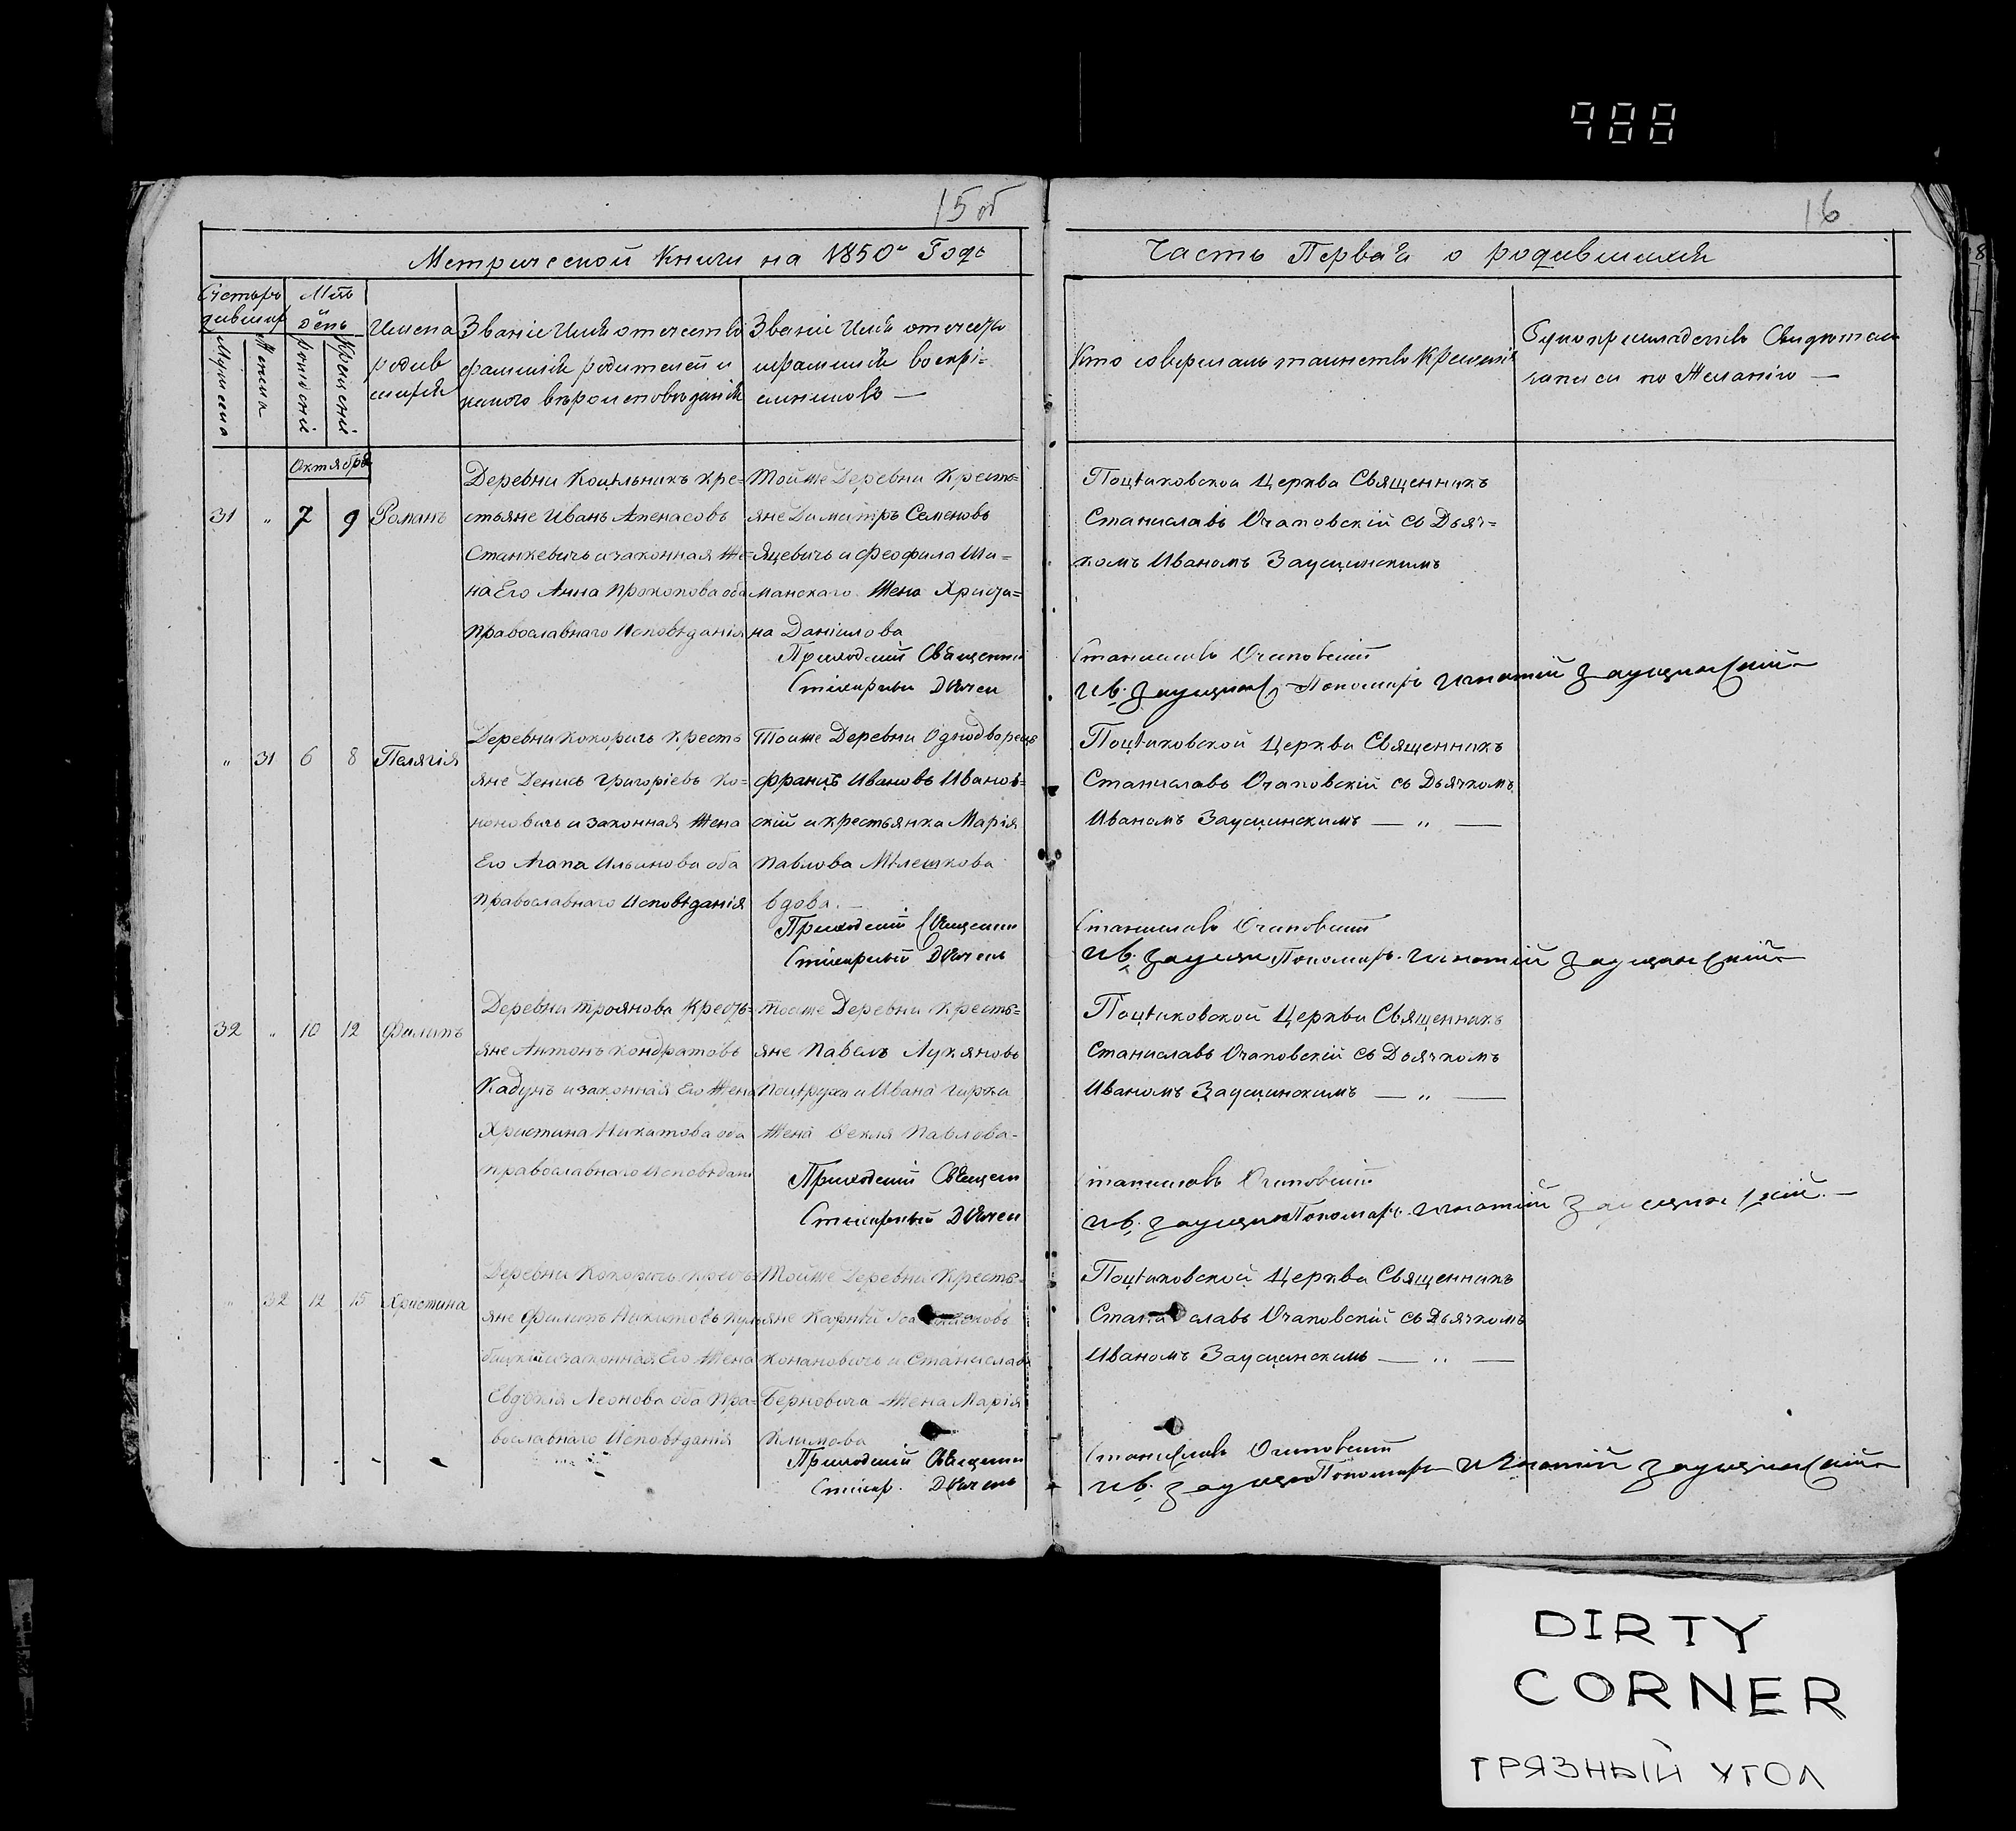 988
15 об
16
Метрической Книги на 1850й Годъ
Часть Первая о родившихся
Счетъ ро
дившихся
Мѣсяцъ
и
день
Мужеска
Женска
рожденія
Крещенія
Имена
родив
шихся
Званіе Имя отчество
фамилія родителей и
какого вѣроисповѣданія
Званіе Имя отчество
и фамилія воспрі-
емниковъ —
Кто совершалъ таинство Крещенія
Рукоприкладство Свидѣтелей
записи по Желанію —
Октября
31 " 7 9 Романъ
Деревни Коцѣльникъ Кре-
стьяне Иванъ Апенасовъ
Станкевичъ и законная Же-
на Его Анна Прокопова оба
Православнаго Исповѣданія
Тойже Деревни Кресть-
яне Димитръ Семеновъ
Яцевичъ и Феофила Ши-
манскаго Жена Христи-
на Даніилова
Приходскій Священник
Стихарный Дьячек
Поцѣйковской Церкви Священникъ
Станиславъ Очаповскій съ Дьяч-
комъ Иваномъ Заусцинскимъ
Станиславъ Очаповскій
Ив. Заусцинс Пономарь Игнатій Заусцинскій
" 31 6 8 Пелягія
Деревни Кокоричъ Кресть
яне Денисъ Григоріевъ Ко-
ноновичъ и законная Жена
Его Агапа Ильинова оба
Православнаго Исповѣданія
Тойже Деревни Однодворецъ
Францъ Ивановъ Иванов-
скій и крестьянка Марія
Павлова Мѣлешкова
вдова. —
Приходскій Священник
Стихарный Дьячекъ
Поцѣйковской Церкви Священникъ
Станиславъ Очаповскій съ Дьячкомъ
Иваномъ Заусцинскимъ — " —
Станиславъ Очаповскій
Ив. Заусцин Пономарь Игнатій Заусцинскій
32 " 10 12 Филипъ
Деревни Троянова Кресть-
яне Антонъ Кондратовъ
Кадунъ и законная Его Жена
Христина Никитова оба
Православнаго Исповѣдані
Тойже Деревни Кресть-
яне Павелъ Лукяновъ
и Ивана Гирки
Жена Фекля Павлова-
Приходскій Священ
Стихарный Дьячек
Поцѣйковской Церкви Священникъ
Станиславъ Очаповскій съ Дьячкомъ
Иваномъ Заусцинскимъ — " —
Станиславъ Очаповскій
Ив. Заусцин Пономарь Игнатій Заусцинскій. —
" 32 12 15 Христина
Деревни Кокоричъ Кресть-
яне Филипъ Никитовъ Куль
бицкій и законная Его Жена
Евдокія Леонова оба Пра-
вославнаго Исповѣданія
Тойже Деревни Кресть-
яне Карнѣй
Конановичъ и Станислава
Берновича Жена Марія
Климова
Приходскій Священник
Стихар. Дьячекъ
Поцѣйковской Церкви Священникъ
Станиславъ Очаповскій съ Дьячкомъ
Иваномъ Заусцинскимъ — " —
Станиславъ Очаповскій
Ив. Заусцин Пономарь Игнатій Заусцинскій
DIRTY
CORNER
ГРЯЗНЫЙ УГОЛ